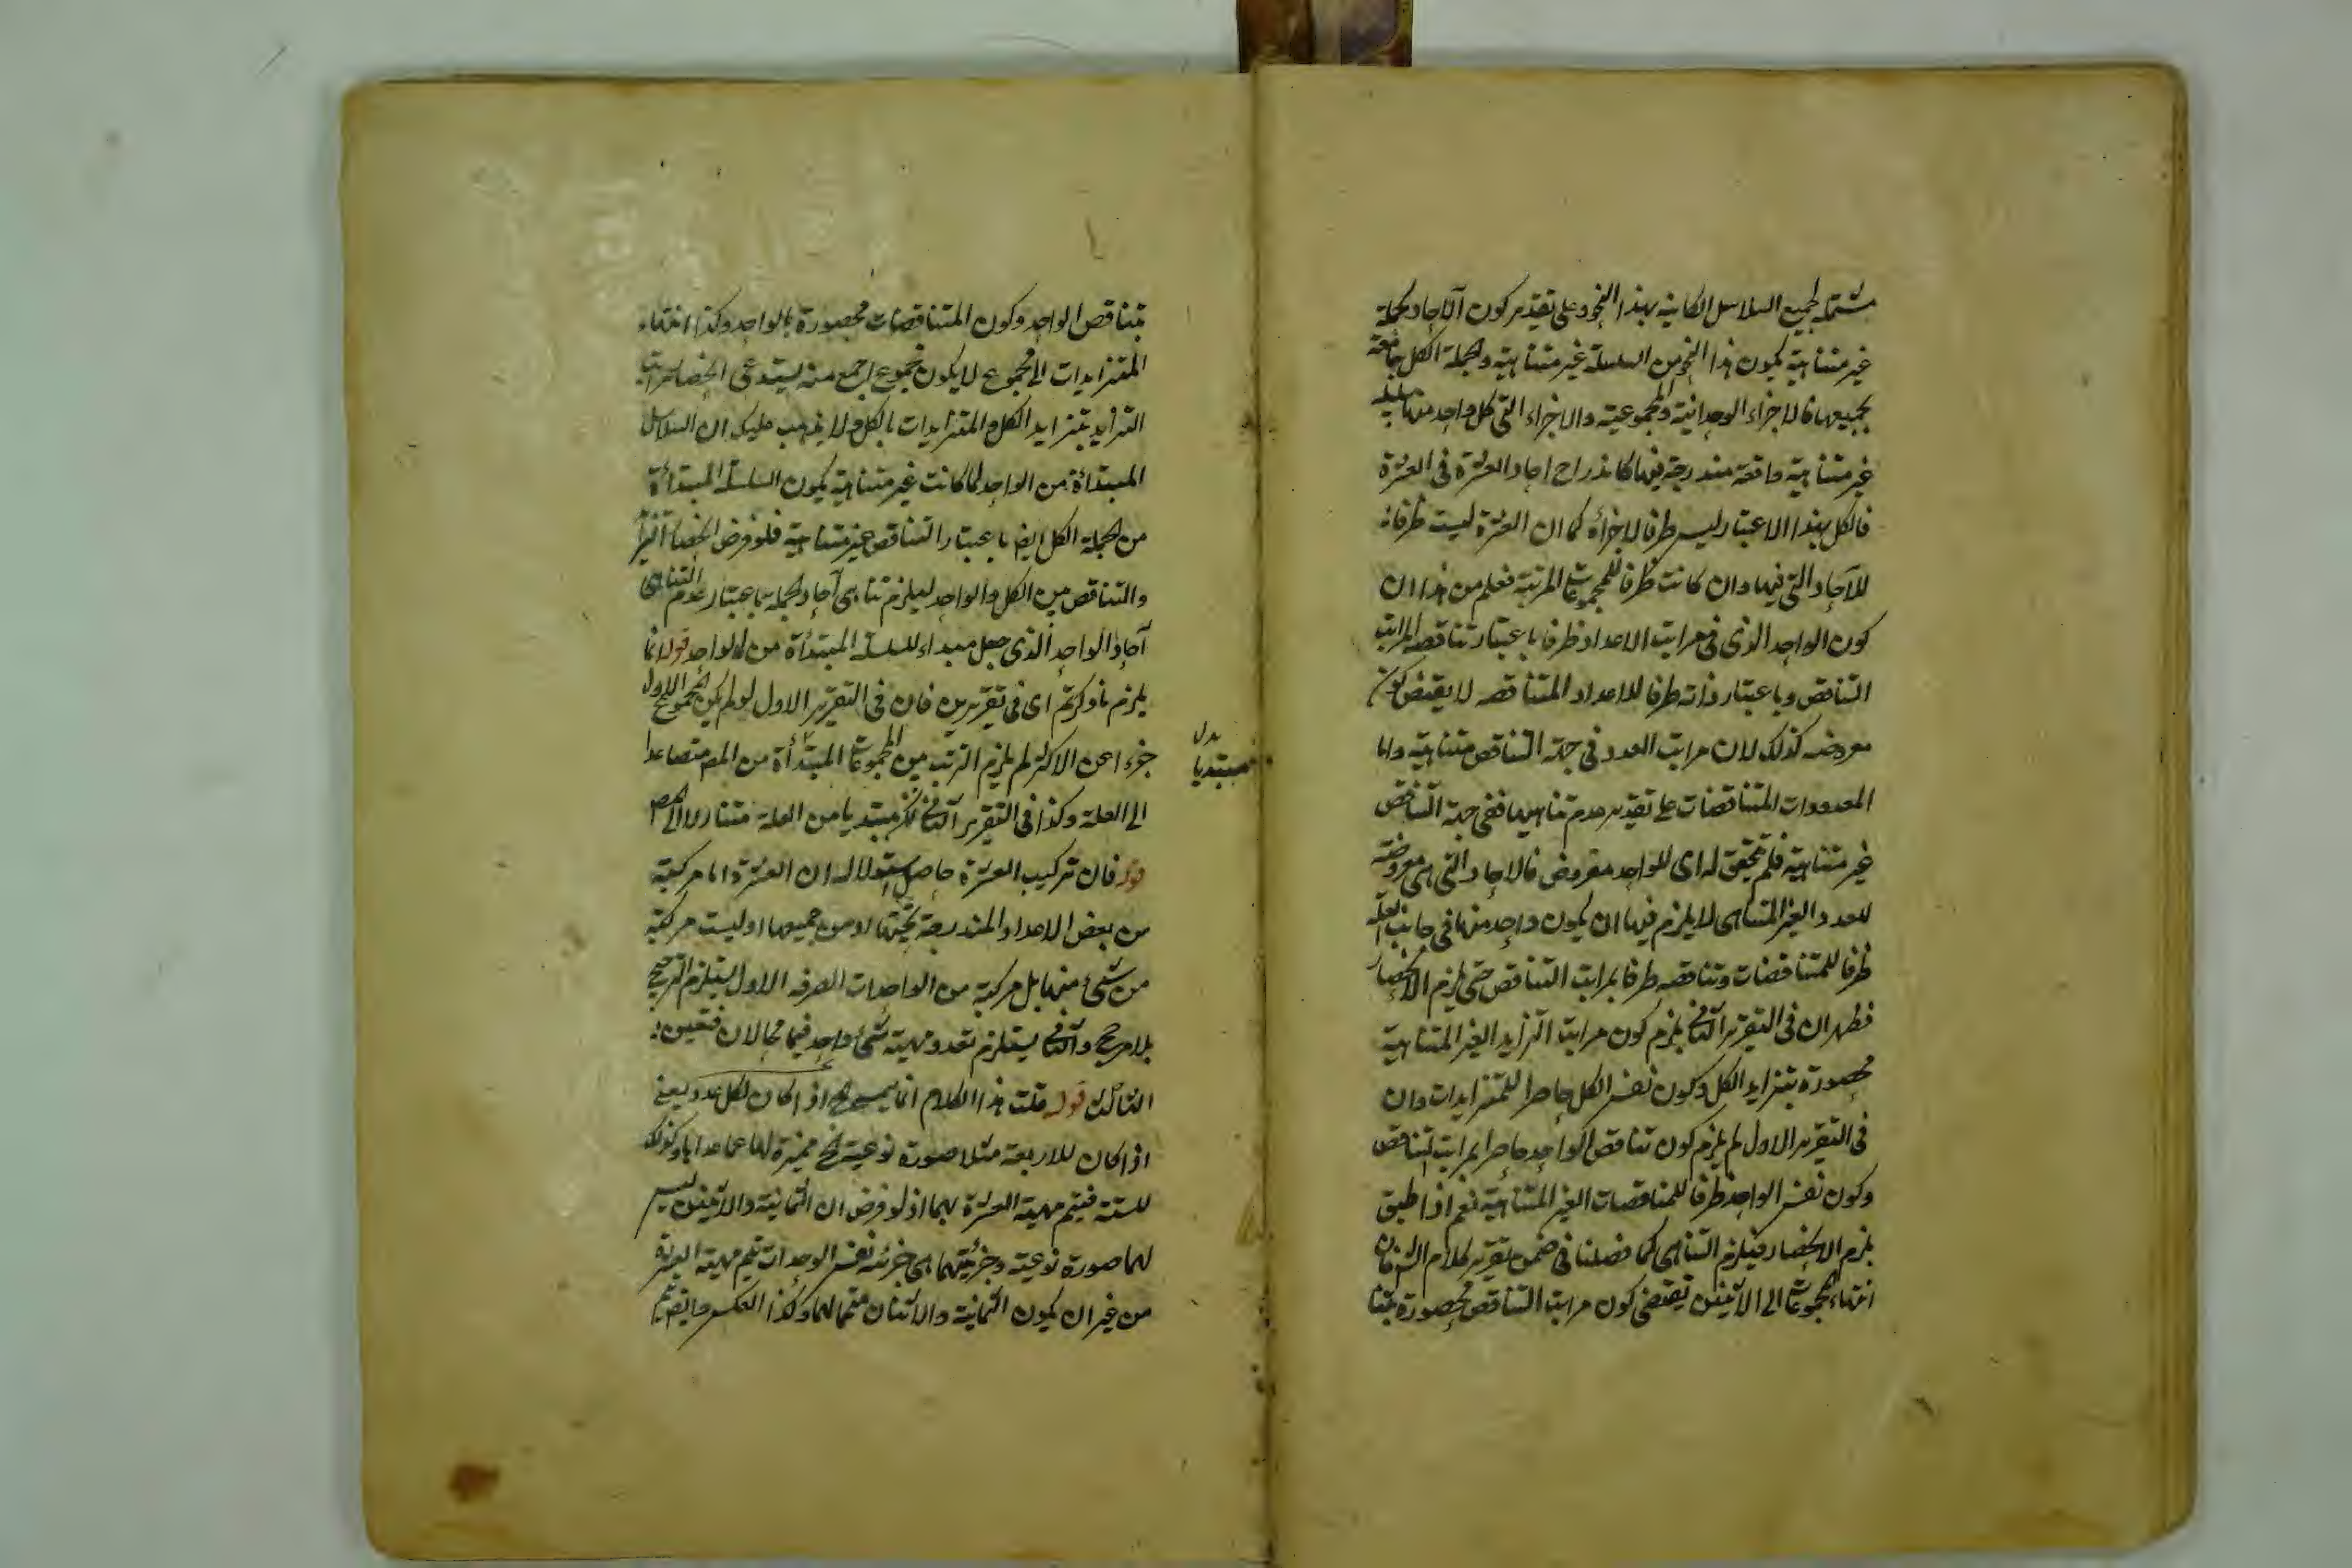 مشتملة لجميع السلاسل الكائنة بهذا النحو وعلى تقدير كون الآحاد كجملة
غير متناهية يكون هذا النحو من السلسلة غير متناهية ولجملة الكل جامعة
بجميعها فالاجزاء الوحدانية والمجموعية والاجزاء التي كل واحد منها سلسلة
غير متناهية واقعة مندرجة فيها كاندراج احاد العشرة في العشرة
فالكل بهذا الاعتبار ليس طرفا لاجزائه كما ان العشرة ليست طرفا
للآحاد التي فيها وان كانت طرفا للمجموعات المرتبة فعلم من هذا ان
كون الواحد الذي في مراتب الاعداد طرفا باعتبار تناقصه لمراتب
التناقص وباعتبار ذاته طرفا للاعداد المتناقصة لا يقتضي كون
معروضه كذلك لان مراتب العدد في جهة التناقص متناهية واما
المعدودات المتناقضات على تقدير عدم تناهيها ففي جهة التناقص
غير متناهية فلم يتحقق له اي للواحد معروض فالاحاد التي هي معروضة
للعدد الغير المتناهي لا يلزم فيها ان يكون واحد منها في جانب العلة
طرفا للمتناقصات وتناقصه طرفا بمراتب التناقص حتى يلزم الانحصار
فظهر ان في التقرير الثاني يلزم كون مراتب التزايد الغير المتناهية
محصورة بتزايد الكل وكون نفس الكل حاصرا للمتزايدات وان
في التقرير الاول لم يلزم كون تناقص الواحد حاصرا بمراتب التناقص
وكون نفس الواحد طرفا للمتناقصات الغير المتناهية نعم اذا طبق
يلزم الانحصار فيلزم التناهي كما فصلنا في ضمن تقرير كلام الش فان
انتهاء المجموعات الى الاثنين يقتضي كون مراتب التناقص محصورة بتنا
بتناقص الواحد وكون المتناقصات محصورة بالواحد وكذا انتهاء
المتزايدات الى مجموع لا يكون مجموع اجمع منه يستدعي انحصار مراتب
التزايد بتزايد الكل والمتزايدات بالكل ولا يذهب عليك ان السلاسل
المبتدأة من الواحد لما كانت غير متناهية يكون السلسلة المبتدأة
من لجملة الكل ايضا باعتبار التناقص غير متناهية فلو فرض انحصار التزايد
والتناقص بين الكل والواحد ليلزم تناهي آحاد لجملة باعتبار عدم التناهي
آحاد الواحد الذي جعل مبداء للسلسلة المبتدأة من الواحد قوله انما
يلزم ما ذكرتم اي في تقريرين فان في التقرير الاول لو لم يكن المجموع الاول
جزءا من الاكثر لم يلزم الترتب بين المجموعات المبتدأة من المع متصاعدا
الى العلة وكذا في التقرير الثاني مبتديا من العلة متنازلا الى المع
بدل
مبتديا
قوله فان تركيب العشرة حاصل استدلاله ان العشرة اما مركبة
من بعض الاعداد المندرجة تحتها او من جميعها او ليست مركبة
من شئ منها بل مركبة من الواحدات الصرفة الاول يستلزم الترجيح
بلا مرجح والثاني يستلزم تعدد مهية شئ واحد فيها محالان فتعين
الثالث قوله قلت هذا الكلام انما يصح اذا كان لكل عدد يعني
اذا كان للاربعة مثلا صورة نوعية مميزة لها عما عداها وكذلك
للستة فيتم مهية العشرة بهما اذ لو فرض ان الثمانية والاثنين ليس
لهما صورة نوعية وجزئيتهما هي جزئية نفس الوحدات يتم مهية العشرة
من غير ان يكون الثمانية والاثنان متمما لهما وكذا العكس